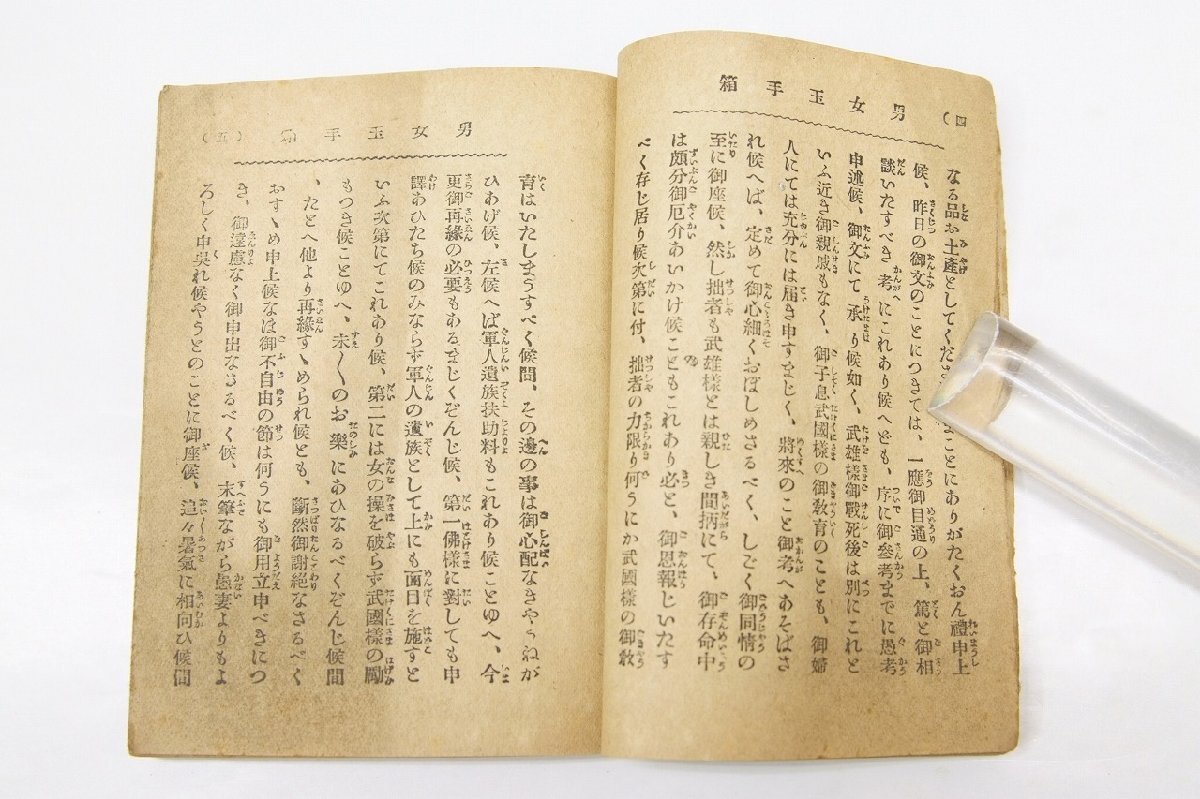 男女玉手箱
（四
なる品お土産としてくだことにありがたくおん禮申上
候、昨日の御文のことにつきては、一應御目通の上、篤と御相
談いたすべき考にこれあり候へども、序に御參考までに愚考
申述候、御文にて承り候如く、武雄樣御戰死後は別にこれと
いふ近き御親戚もなく、御子息武國樣の御敎育のことも、御婦
人にては充分には届き申すまじく、將來のこと御考へあそばさ
れ候へば、定めて御心細くおぼしめさるべく、しごく御同情の
至に御座候、然し拙者も武雄樣とは親しき間柄にて、御存命中
は頗分御厄介あいかけ候こともこれあり必と、御恩報じいたす
べく存じ居り候次第に付、拙者の力限り何うにか武國樣の御敎
男女玉手箱
（五）
育はいたしまうすべく候間、その邊の事は御心配なきやうねが
ひあげ候、左候へば軍人遺族扶助料もこれあり候ことゆへ、今
更御再緣の必要もあるまじくぞんじ候、第一佛樣に對しても申
譯あひたち候のみならず軍人の遺族として上にも面目を施すと
いふ次第にてこれあり候、第二には女の操を破らず武國樣の勵
もつき候ことゆへ、末〱のお樂にあひなるべくぞんじ候間
、たとへ他より再緣すゝめられ候とも、斷然御謝絕なさるべく
おすゝめ申上候なほ御不自由の節は何うにも御用立申べきにつ
き、御遠慮なく御申出なさるべく候、末筆ながら愚妻よりもよ
ろしく申呉れ候やうとのことに御座候、追々暑氣に相向ひ候間